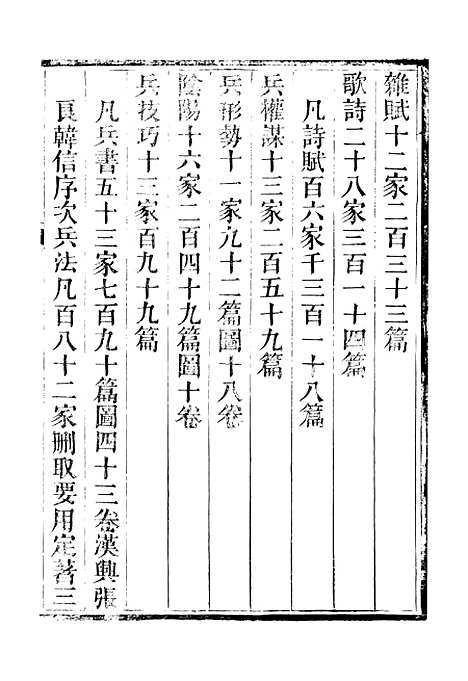 雜賦十二家二百三十三篇
歌詩二十八家三百一十四篇
凡詩賦百六家千三百一十八篇
兵權謀十三家二百五十九篇
兵形勢十一家九十二篇圖十八卷
陰陽十六家二百四十九篇圖十卷
兵技巧十三家百九十九篇
凡兵書五十三家七百九十篇圖四十三卷漢興張
良韓信序次兵法凡百八十二家刪取要用定著三